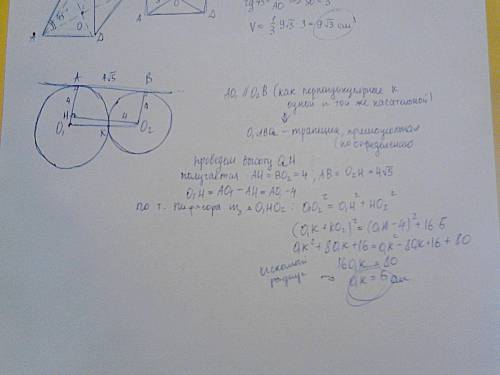 V = 1/3 9√3 · 3 = 9√3 см³
A 4√5 B
4 4
H 4
O₁ K O₂
AO₁ ∥ O₂B (как перпендикуляры к
одной и той же касательной)
⇓
O₁ABO₂ – трапеция, прямоугольная
(по определению
проведем высоту O₂H
получается AH = BO₂ = 4 ; AB = O₂H = 4√5
O₁H = AO₁ - AH = AO₁ - 4
по т. Пифагора из △ O₁HO₂ : O₁O₂² = O₁H² + HO₂²
(O₁K + KO₂)² = (O₁A - 4)² + 16·5
O₁K² + 8O₁K + 16 = O₁K² - 8O₁K + 16 + 80
16O₁K = 80
искомый радиус → O₁K = 5 см